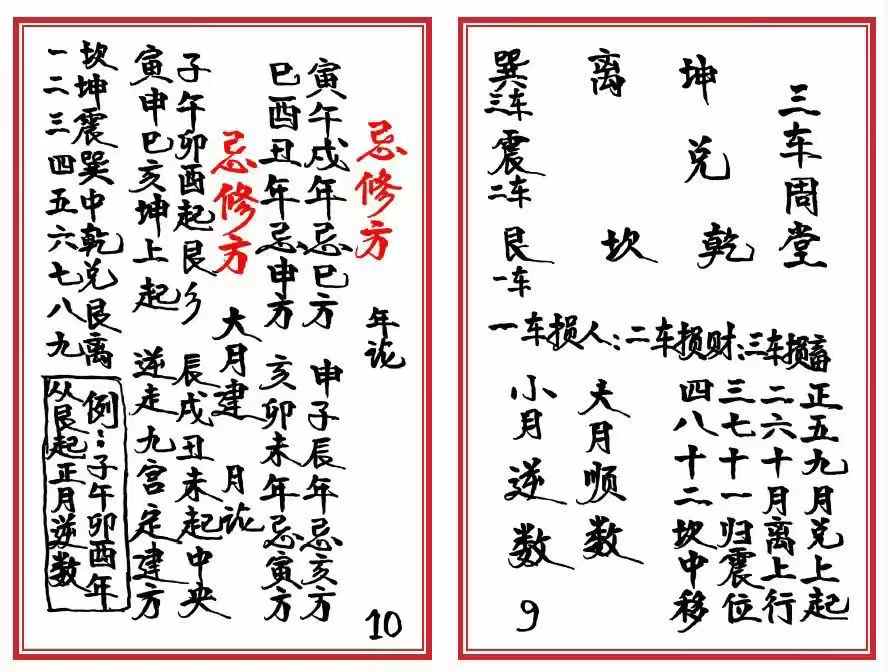 三车周堂
坤 兑 乾
离 坎
巽三车 震二车 艮一车
一车损人:二车损财:三车损畜
正五九月兑上起
二六十月离上行
三七十一归震位
四八十二坎中移
大月顺数
小月逆数
9
忌修方 年论
寅午戌年忌巳方 申子辰年忌亥方
巳酉丑年忌申方 亥卯未年忌寅方
忌修方 大月建 月论
子午卯酉起艮乡 辰戌丑未起中央
寅申巳亥坤上起 逆走九宫定建方
坎坤震巽中乾兑艮离
一二三四五六七八九
例:子午卯酉年
从艮起正月逆数
10